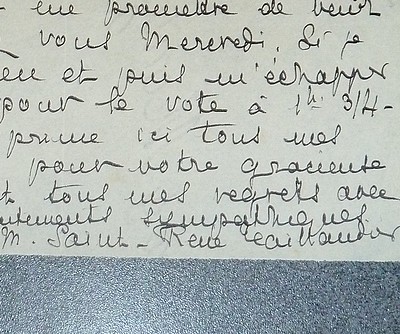 me promettre de venir
vous Mercredi. Si je
et puis m'échapper
pour le vote à 1h 3/4-
prime ici tous mes
pour votre gracieuse
tous mes regrets avec
sympathiques
M. Saint-René Taillandier